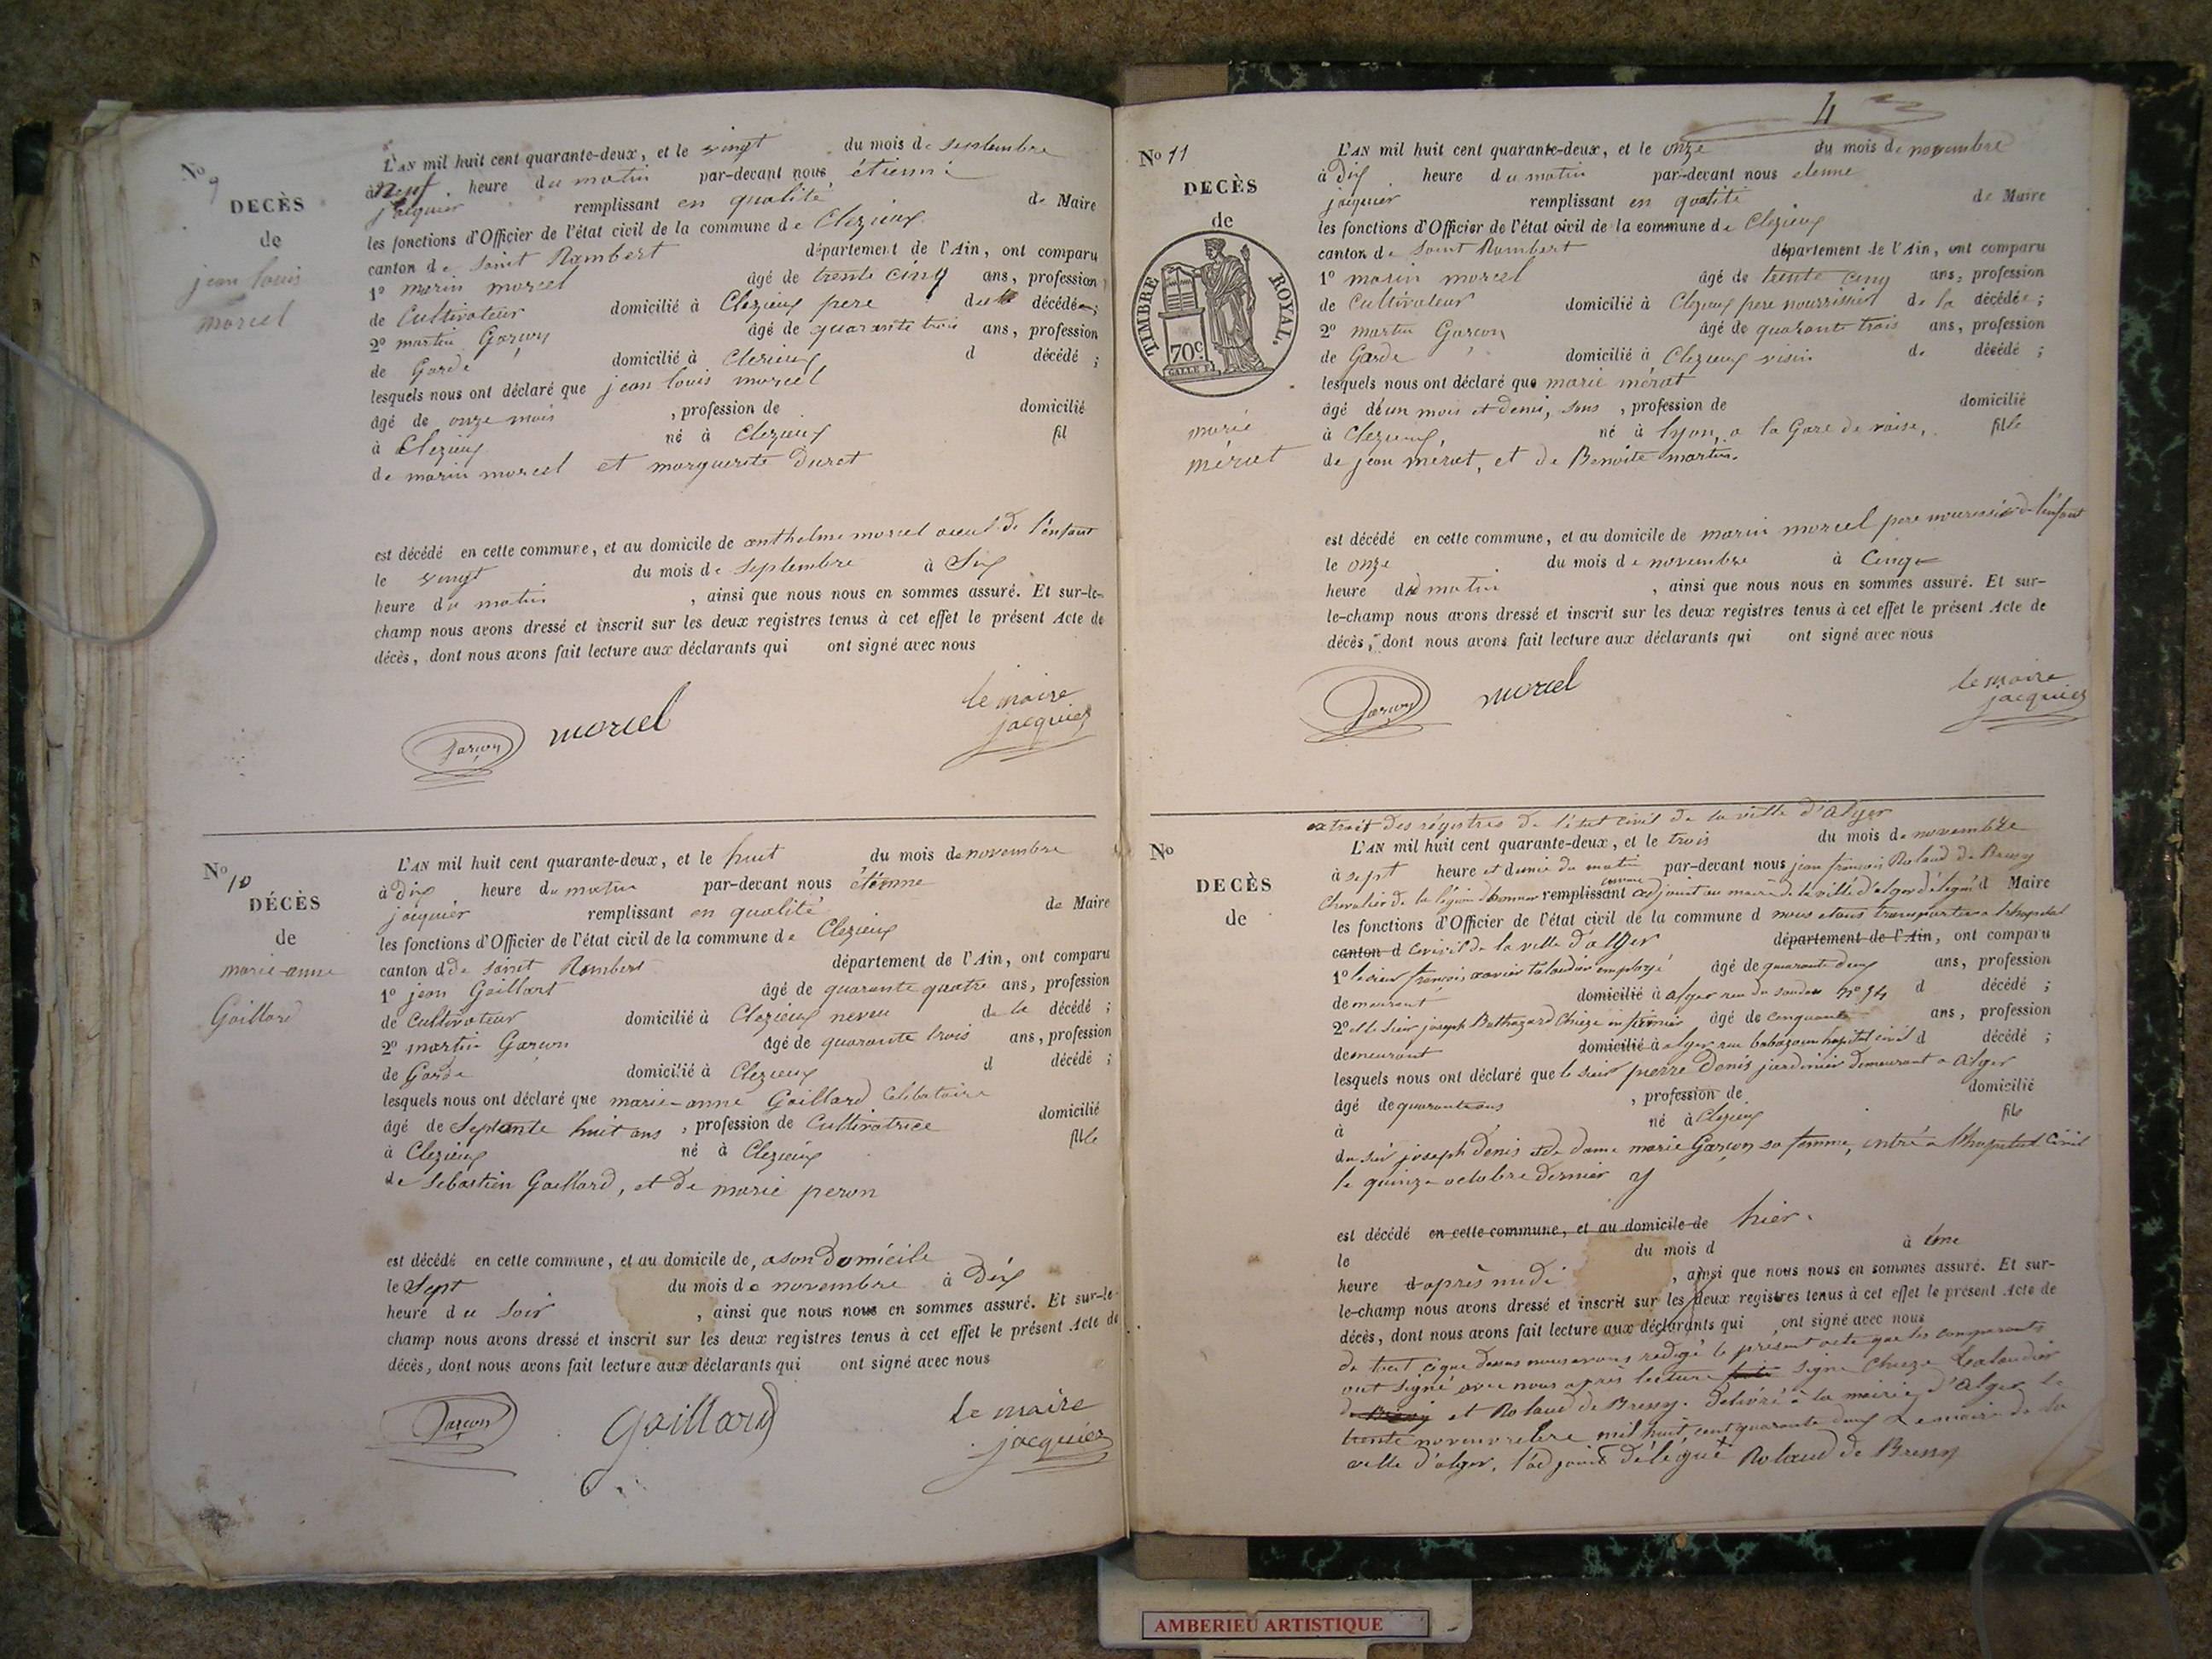 No 9
DECÈS
de
jean louis
morcel
L'AN mil huit cent quarante-deux, et le vingt du mois de septembre
à neuf heure du matin par-devant nous étienne
jacquier remplissant en qualité de Maire
les fonctions d'Officier de l'état civil de la commune de Clezieux
canton de Saint Rambert département de l'Ain, ont comparu
1º marin morcel âgé de trente cinq ans, profession
de Cultivateur domicilié à Clezieux pere du décédé;
2º martin Garçon âgé de quarante trois ans, profession
de Garde domicilié à Clezieux d décédé ;
lesquels nous ont déclaré que jean louis morcel
âgé de onze mois , profession de domicilié
à Clezieux né à Clezieux fil
de marin morcel et marguerite Duret
est décédé en cette commune, et au domicile de anthelme morcel aieul de l'enfant
le vingt du mois de septembre à Six
heure du matin , ainsi que nous nous en sommes assuré. Et sur-le-
champ nous avons dressé et inscrit sur les deux registres tenus à cet effet le présent Acte de
décès, dont nous avons fait lecture aux déclarants qui ont signé avec nous
Garçon morcel le maire
jacquier
No 10
DÉCÈS
de
marie-anne
Gaillard
L'AN mil huit cent quarante-deux, et le huit du mois de novembre
à dix heure du matin par-devant nous étienne
jacquier remplissant en qualité de Maire
les fonctions d'Officier de l'état civil de la commune de Clezieux
canton d de saint Rambert département de l'Ain, ont comparu
1º jean Gaillart âgé de quarante quatre ans, profession
de Cultivateur domicilié à Clezieux neveu de la décédé ;
2º martin Garçon âgé de quarante trois ans, profession
de Garde domicilié à Clezieux d décédé ;
lesquels nous ont déclaré que marie-anne Gaillard Celibataire
âgé de Septante huit ans , profession de Cultivatrice domicilié
à Clezieux né à Clezieux fille
de Sebastien Gaillard, et de marie peron
est décédé en cette commune, et au domicile de, a son Domicile
le Sept du mois de novembre à Dix
heure du soir , ainsi que nous nous en sommes assuré. Et sur-le-
champ nous avons dressé et inscrit sur les deux registres tenus à cet effet le présent Acte de
décès, dont nous avons fait lecture aux déclarants qui ont signé avec nous
Garçon Gaillard le maire
jacquier
4
No 11
DECÈS
de
TIMBRE ROYAL.
70c
marie
mérat
L'AN mil huit cent quarante-deux, et le onze du mois de novembre
à Dix heure du matin par-devant nous etienne
jacquier remplissant en qualité de Maire
les fonctions d'Officier de l'état civil de la commune de Clezieux
canton de Saint Rambert département de l'Ain, ont comparu
1º marin morcel âgé de trente cinq ans, profession
de Cultivateur domicilié à Clezieux pere nourrissier de la décédée ;
2º martin Garcon âgé de quarante trois ans, profession
de Garde domicilié à Clezieux voisin de décédé ;
lesquels nous ont déclaré que marie mérat
âgé d'un mois et demi, sans , profession de domicilié
à Clezieux, né à lyon, a la Gare de vaise, fille
de jean merat, et de Benoite martin.
est décédé en cette commune, et au domicile de marin morcel pere nourrissier de l'enfant
le onze du mois de novembre à Cinq
heure du matin , ainsi que nous nous en sommes assuré. Et sur-
le-champ nous avons dressé et inscrit sur les deux registres tenus à cet effet le présent Acte de
décès, dont nous avons fait lecture aux déclarants qui ont signé avec nous
Garçon morcel le maire
jacquier
extrait des régistres de l'état civil de la ville d'alger
No
DECÈS
de
L'AN mil huit cent quarante-deux, et le trois du mois de novembre
à sept heure et demie du matin par-devant nous jean françois Roland de Bressy
Chevalier de la légion d'honneur remplissant comme adjoint au maire de la ville d'alger délégué d Maire
les fonctions d'Officier de l'état civil de la commune d nous etant transporter a l'hopital
canton d civil de la ville d'alger département de l'Ain, ont comparu
1º le sieur françois xavier talaudier employé âgé de quarante deux ans, profession
demeurant domicilié à alger rue du nº 94 d décédé ;
2º et le sieur joseph Balthazard Chieze infirmier âgé de cinquante ans, profession
demeurant domicilié à alger rue babazoun hopital civil d décédé ;
lesquels nous ont déclaré que le sieur pierre Denis jardinier demeurant a alger
âgé de quarante ans , profession de domicilié
à né à Clezieux fils
du sieur joseph Denis et de dame marie Garçon sa femme, entré a l'hopital civil
le quinze octobre dernier y
est décédé en cette commune, et au domicile de hier.
le du mois d à une
heure d après midi , ainsi que nous nous en sommes assuré. Et sur-
le-champ nous avons dressé et inscrit sur les deux registres tenus à cet effet le présent Acte de
décès, dont nous avons fait lecture aux déclarants qui ont signé avec nous
de tout ce que dessus nous avons redigé le présent acte que les comparants
ont signé avec nous apres lecture signe Chieze talaudier
et Roland de Bressy. Delivré à la mairie d'alger le
trente novembre mil huit cent quarante deux le maire de la
ville d'alger, l'adjoint délégué Roland de Bressy
AMBERIEU ARTISTIQUE